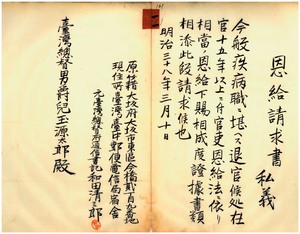 恩給請求書
私義
今般疾病職ニ堪ヘス退官候処在
官十五年以上ニ付官吏恩給法ニ依リ
相當ノ恩給下賜相成度證據書類
相添此段請求候也
明治三十八年三月十日
原籍大阪府大阪市東區今橋貳丁目
現住所臺灣臺中郵便電信局宿舎
元臺灣總督府通信書記和田清
臺灣總督男爵兒玉源太郎殿